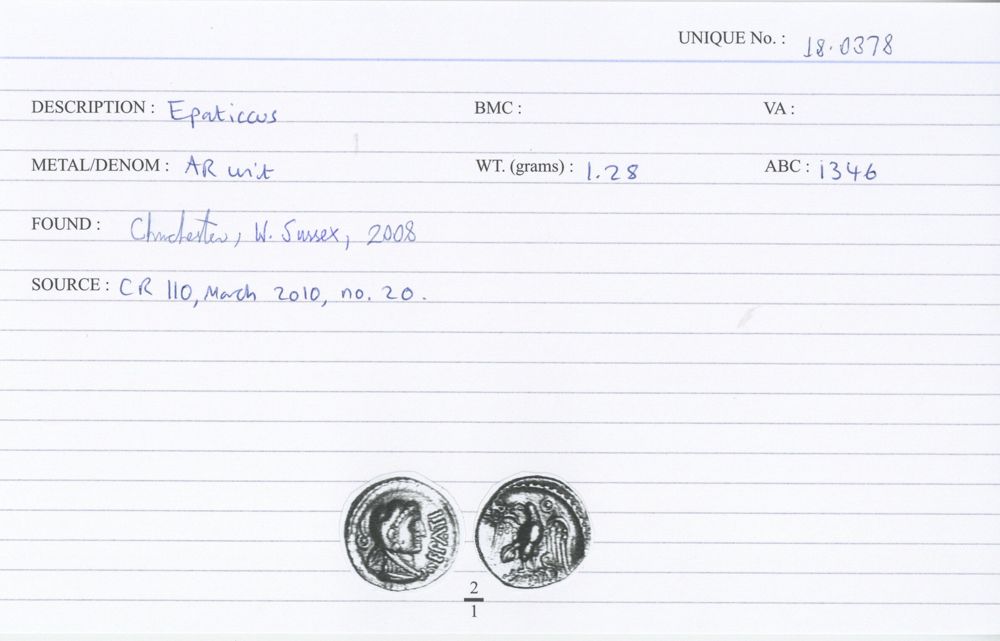 UNIQUE No. : 18.0378
DESCRIPTION : Epaticcus BMC : VA :
METAL/DENOM : AR unit WT. (grams) : 1.28 ABC : 1346
FOUND : Chichester, W. Sussex, 2008
SOURCE : CR 110, March 2010, no. 20.
EPATI
2
1